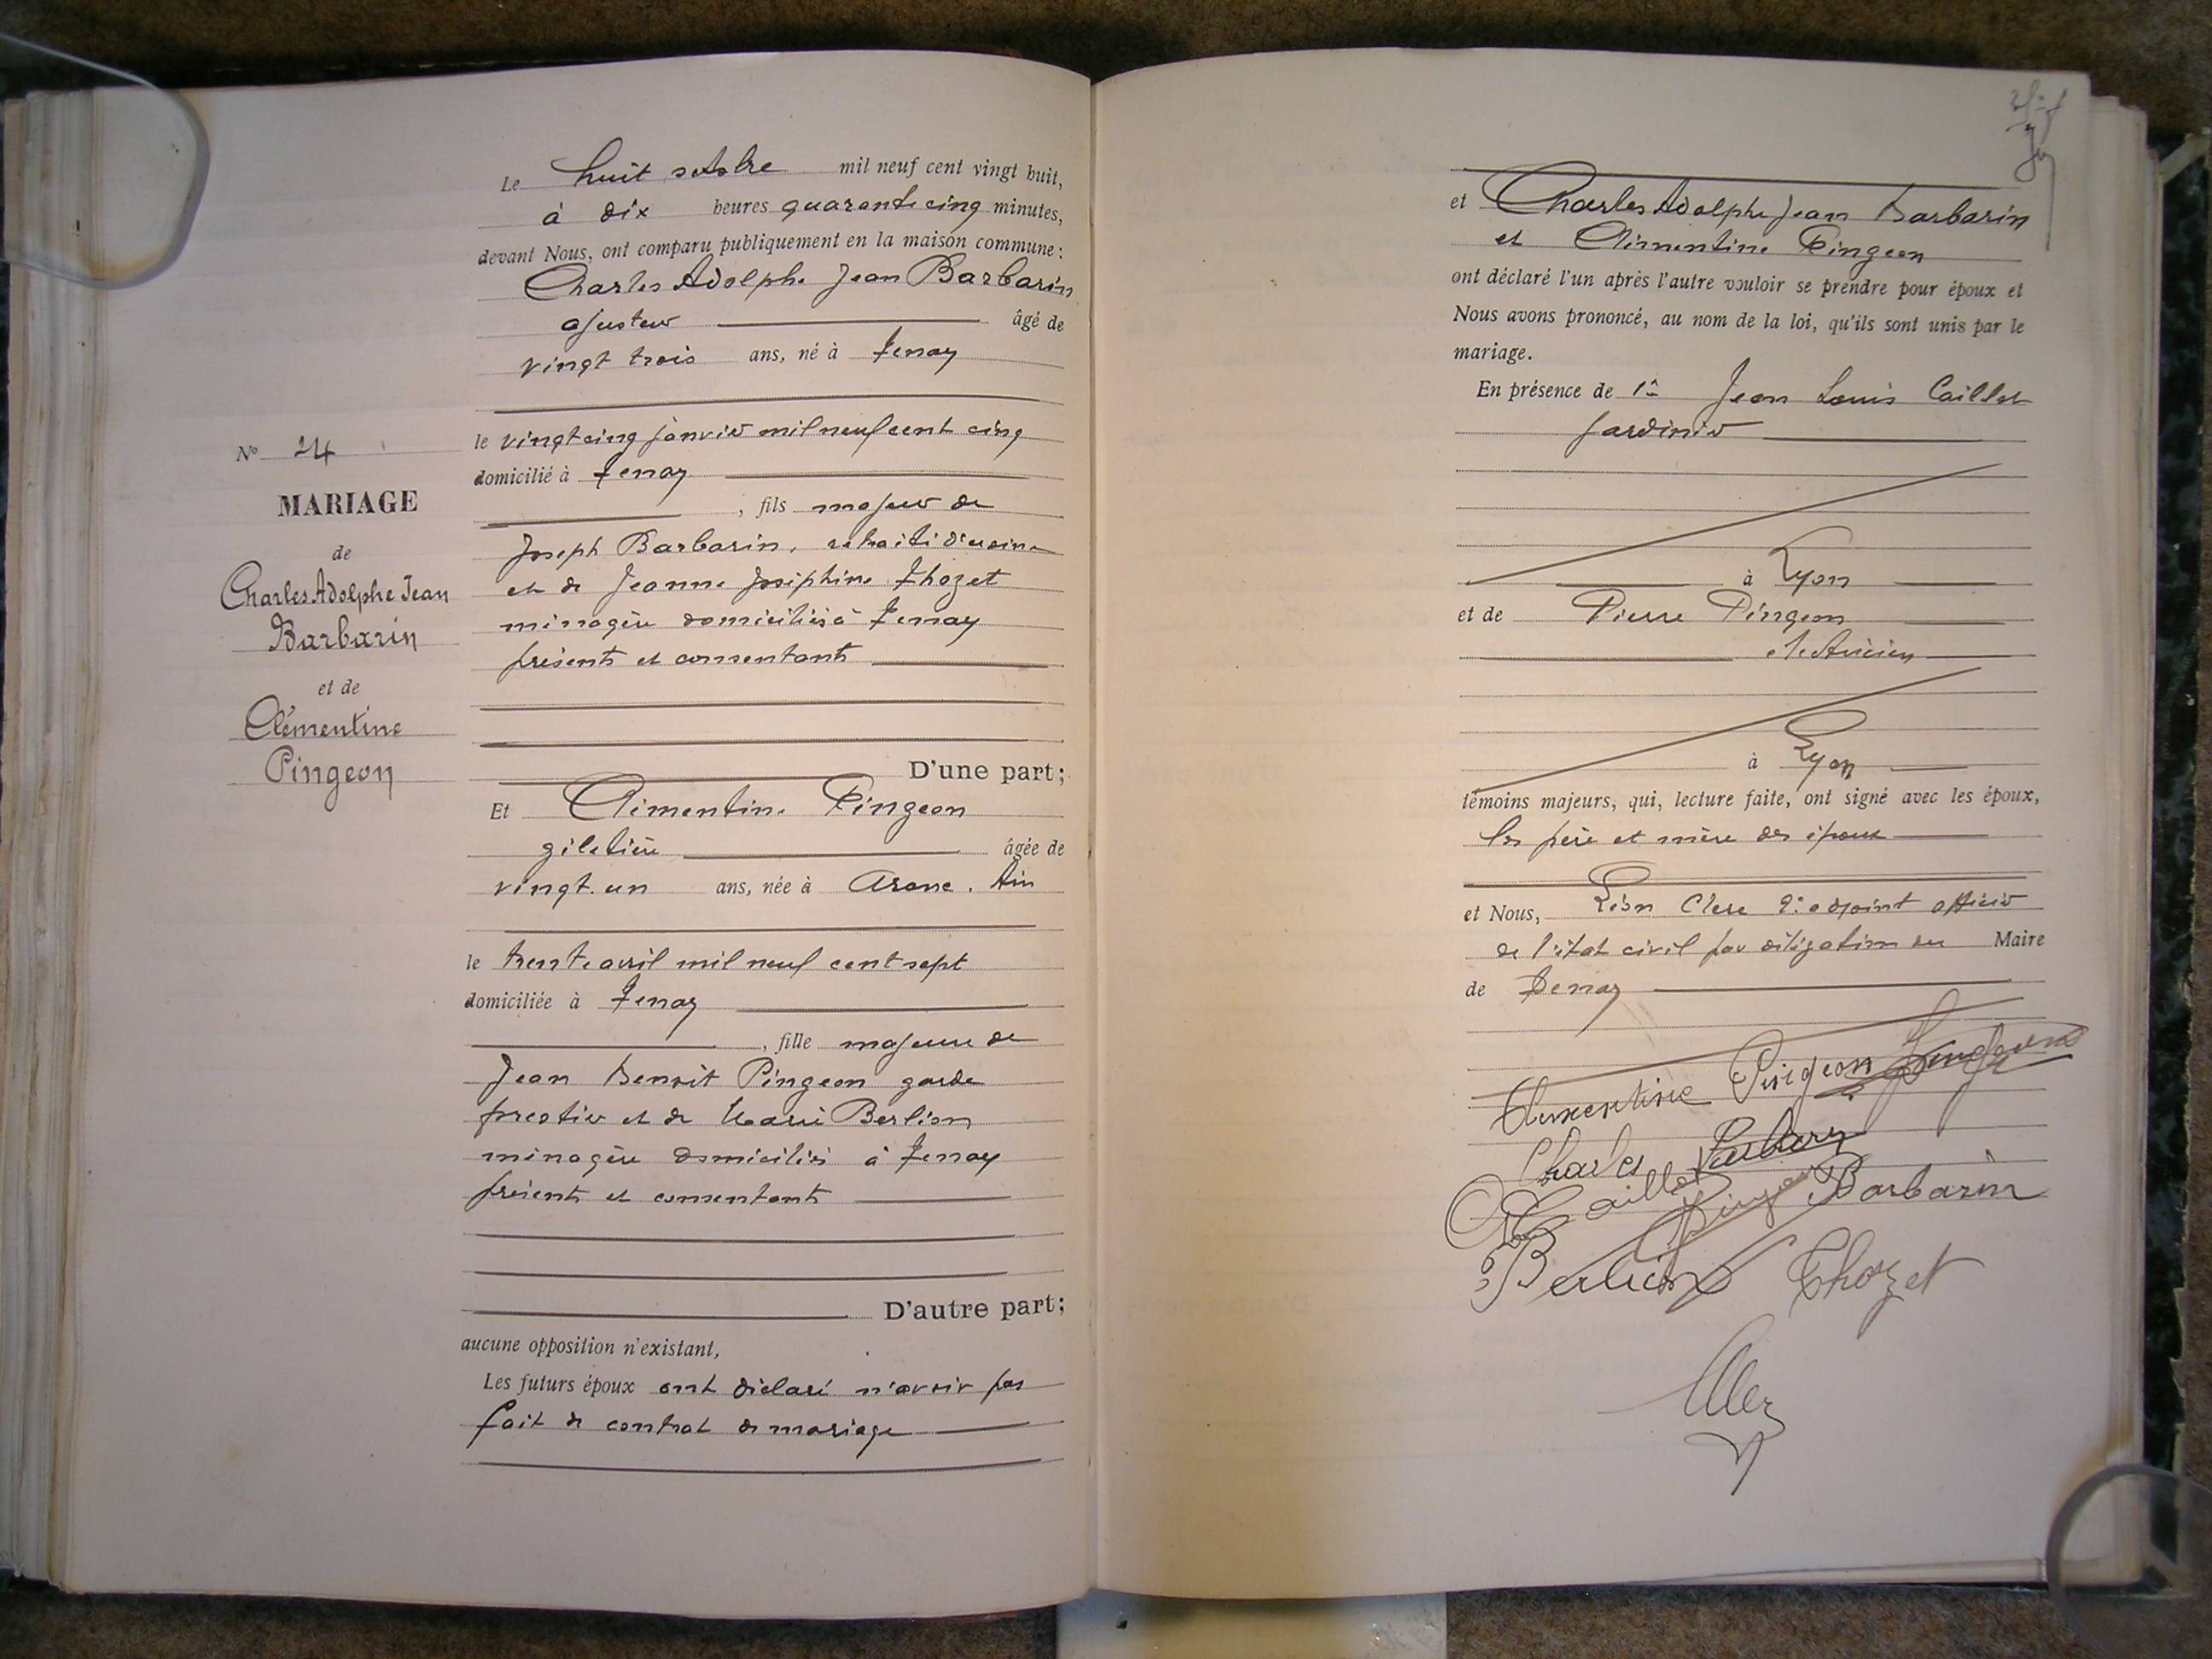 Le huit octobre mil neuf cent vingt huit,
à dix heures quarante cinq minutes,
devant Nous, ont comparu publiquement en la maison commune :
Charles Adolphe Jean Barbarin
ajusteur âgé de
vingt trois ans, né à Tenay
le vingt cinq janvier mil neuf cent cinq
domicilié à Tenay
, fils majeur de
Joseph Barbarin, retraité d'usine
et de Jeanne Joséphine Thozet
ménagère domiciliés à Tenay
présents et consentants
D'une part ;
Et Clémentine Pingeon
giletière âgée de
vingt un ans, née à Arane. Ain
le trente avril mil neuf cent sept
domiciliée à Tenay
, fille majeure de
Jean Benoit Pingeon garde
forestier et de Marie Berlion
ménagère domiciliés à Tenay
présents et consentants
D'autre part ;
aucune opposition n'existant,
Les futurs époux ont déclaré n'avoir pas
fait de contrat de mariage
No 24
MARIAGE
de
Charles Adolphe Jean
Barbarin
et de
Clémentine
Pingeon
et Charles Adolphe Jean Barbarin
et Clémentine Pingeon
ont déclaré l'un après l'autre vouloir se prendre pour époux et
Nous avons prononcé, au nom de la loi, qu'ils sont unis par le
mariage.
En présence de 1° Jean Louis Caillot
jardinier
à Lyon
et de Pierre Pingeon
électricien
à Lyon
témoins majeurs, qui, lecture faite, ont signé avec les époux,
les père et mère des époux
et Nous, Léon Clerc 2e adjoint officier
de l'état civil par délégation du Maire
de Tenay
Clementine Pingeon Pingeon
Charles Barbarin
Caillot Pingeon Barbarin
Berlion Thozet